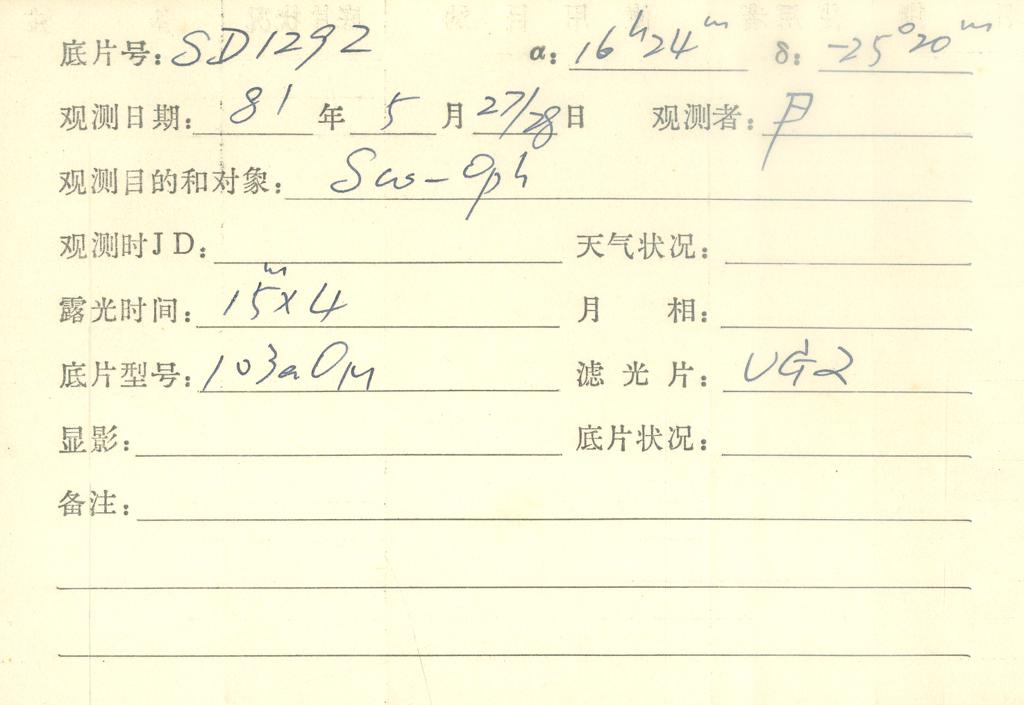 底片号：SD1292 α：16h24m δ：-25°20m
观测日期：81年5月27/28日 观测者：尹
观测目的和对象：Sco-Oph
观测时JD： 天气状况：
露光时间：15m×4 月 相：
底片型号：103aO 滤光片：UG2
显影： 底片状况：
备注：